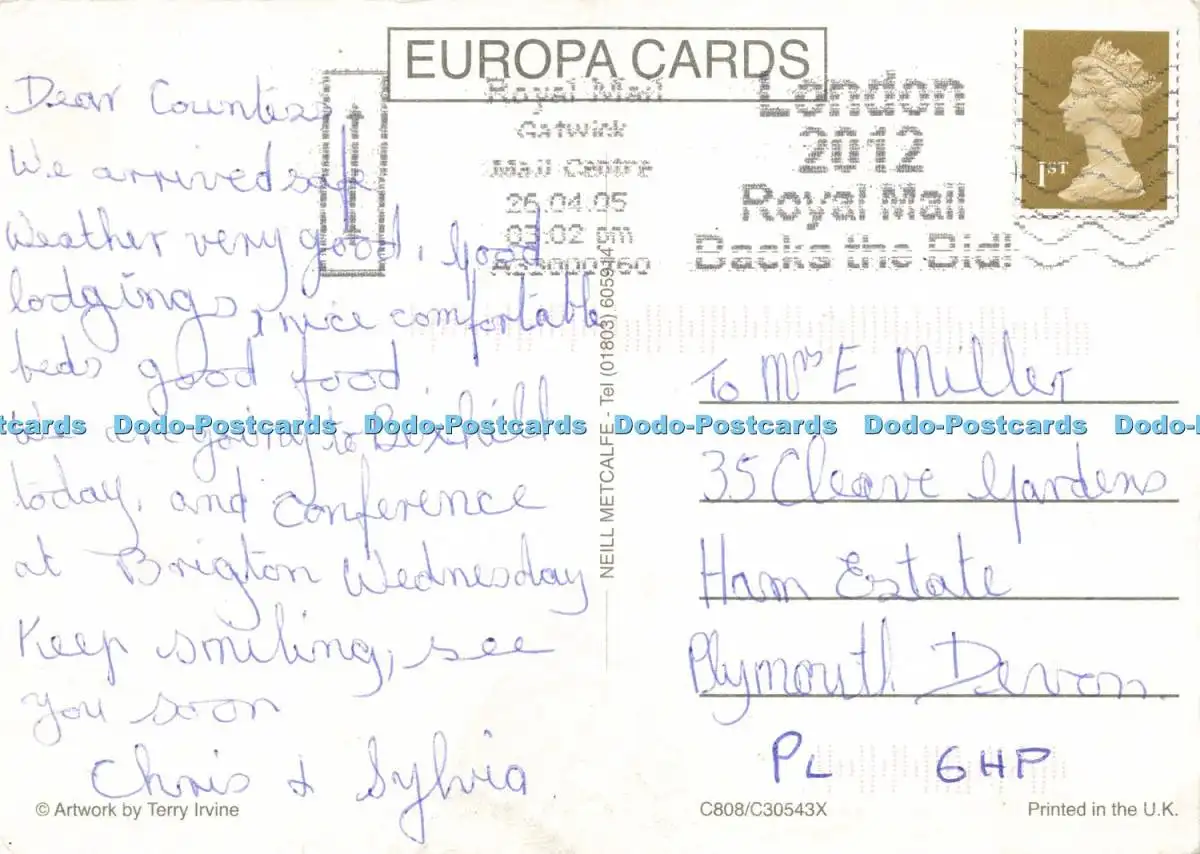 EUROPA CARDS
Dear Countess
We arrived safe
Weather very good, good
lodgings, nice comfortable
beds good food.
We are going to Bexhill
today, and conference
at Brigton Wednesday
Keep smiling, see
you soon
Chris + Sylvia
© Artwork by Terry Irvine
Royal Mail
Gatwick
Mail Centre
26.04.05
03:02 pm
London
2012
Royal Mail
Backs the Bid!
1ST
NEILL METCALFE - Tel (01803) 605914
To Mrs E Miller
35 Cleave Gardens
Ham Estate
Plymouth Devon.
PL 6HP
C808/C30543X
Printed in the U.K.
Dodo-Postcards Dodo-Postcards Dodo-Postcards Dodo-Postcards